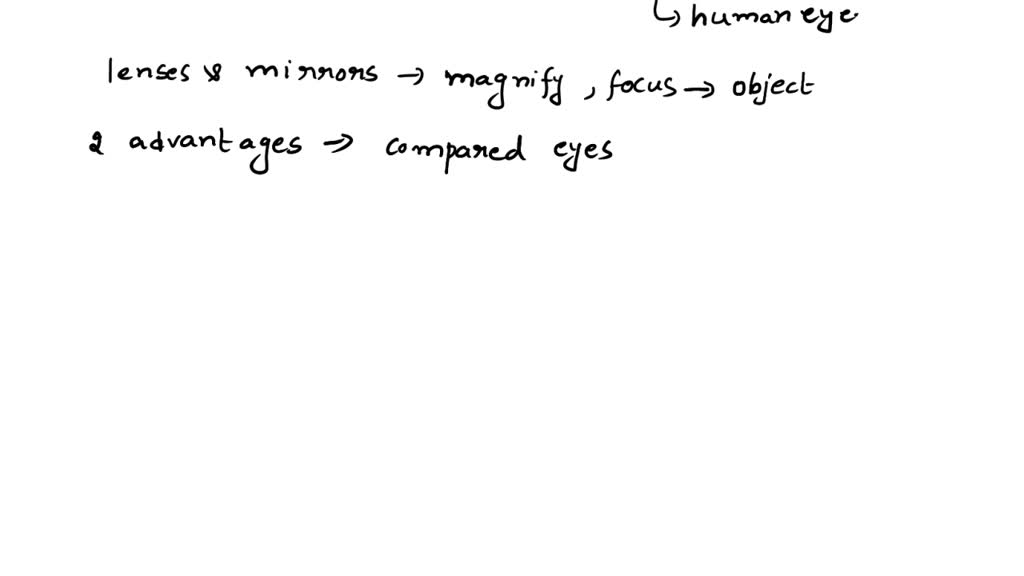 ↳ human eye
lenses & mirrors → magnify, focus → object
2 advantages → compared eyes